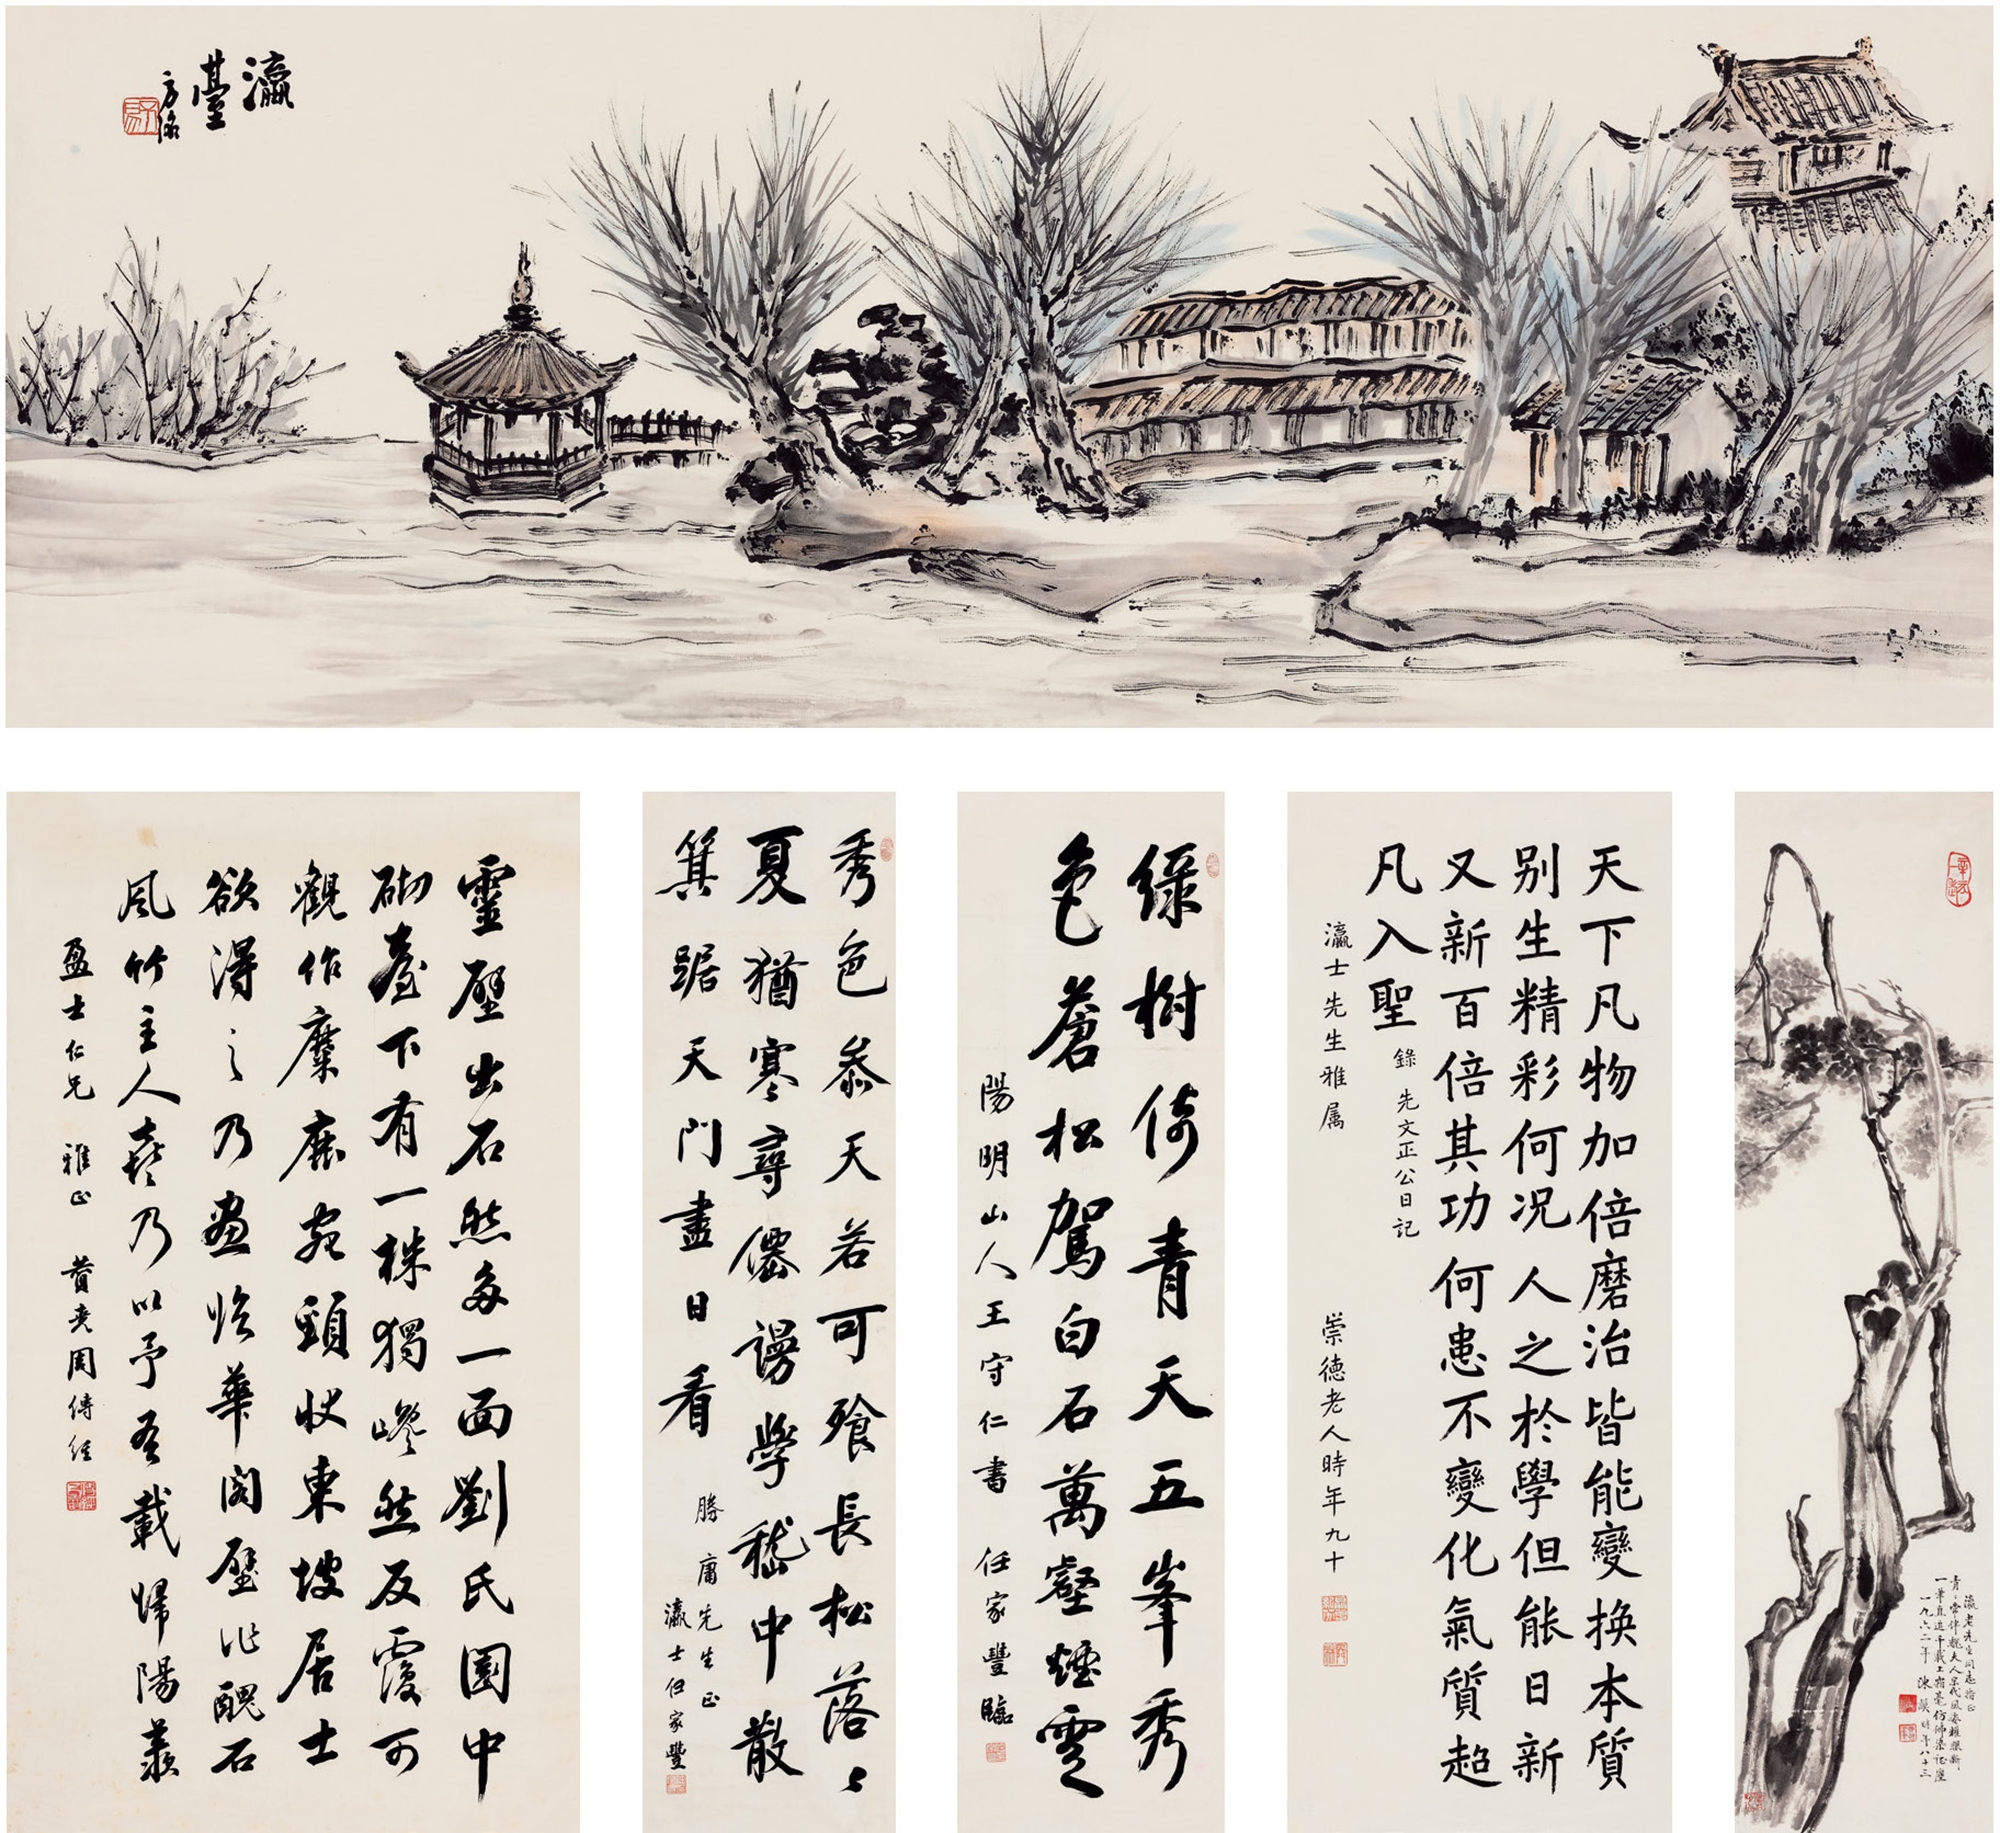 瀛
臺
方
靈壁出石然多一面劉氏園中
砌臺下有一株獨巉然反覆可
觀作麋鹿宛頸狀東坡居士
欲得之乃畫臨華閣壁作醜石
風竹主人喜乃以予吾載歸陽羨
盈士仁兄 雅正 黃堯周傳經
秀色参天若可飱長松落々
夏猶寒尋僊謾學嵇中散
箕踞天門盡日看
勝庸先生正
瀛士任家豐
綠樹倚青天五峯秀
色蒼松駕白石萬壑煙雲
陽明山人王守仁書 任家豐臨
天下凡物加倍磨治皆能變换本質
别生精彩何況人之於學但能日新
又新百倍其功何患不變化氣質超
凡入聖 錄 先文正公日記
瀛士先生雅属
崇德老人時年九十
瀛老先生同志指正
一九六二年 陳 時年八十三